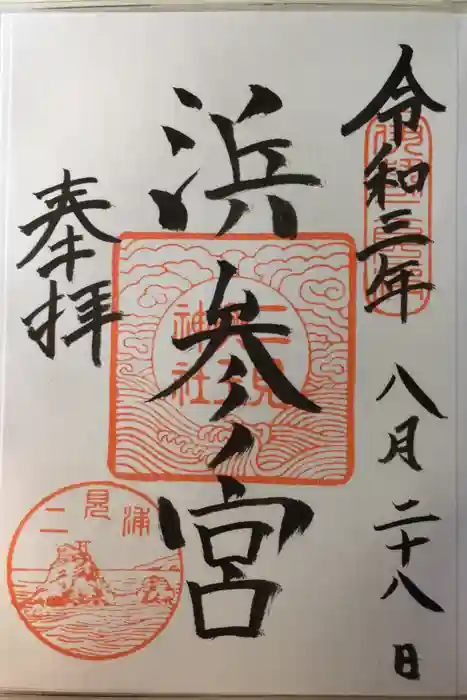 令和三年 八月二十八日
浜参ノ宮
奉拝
二見
神社
二見浦